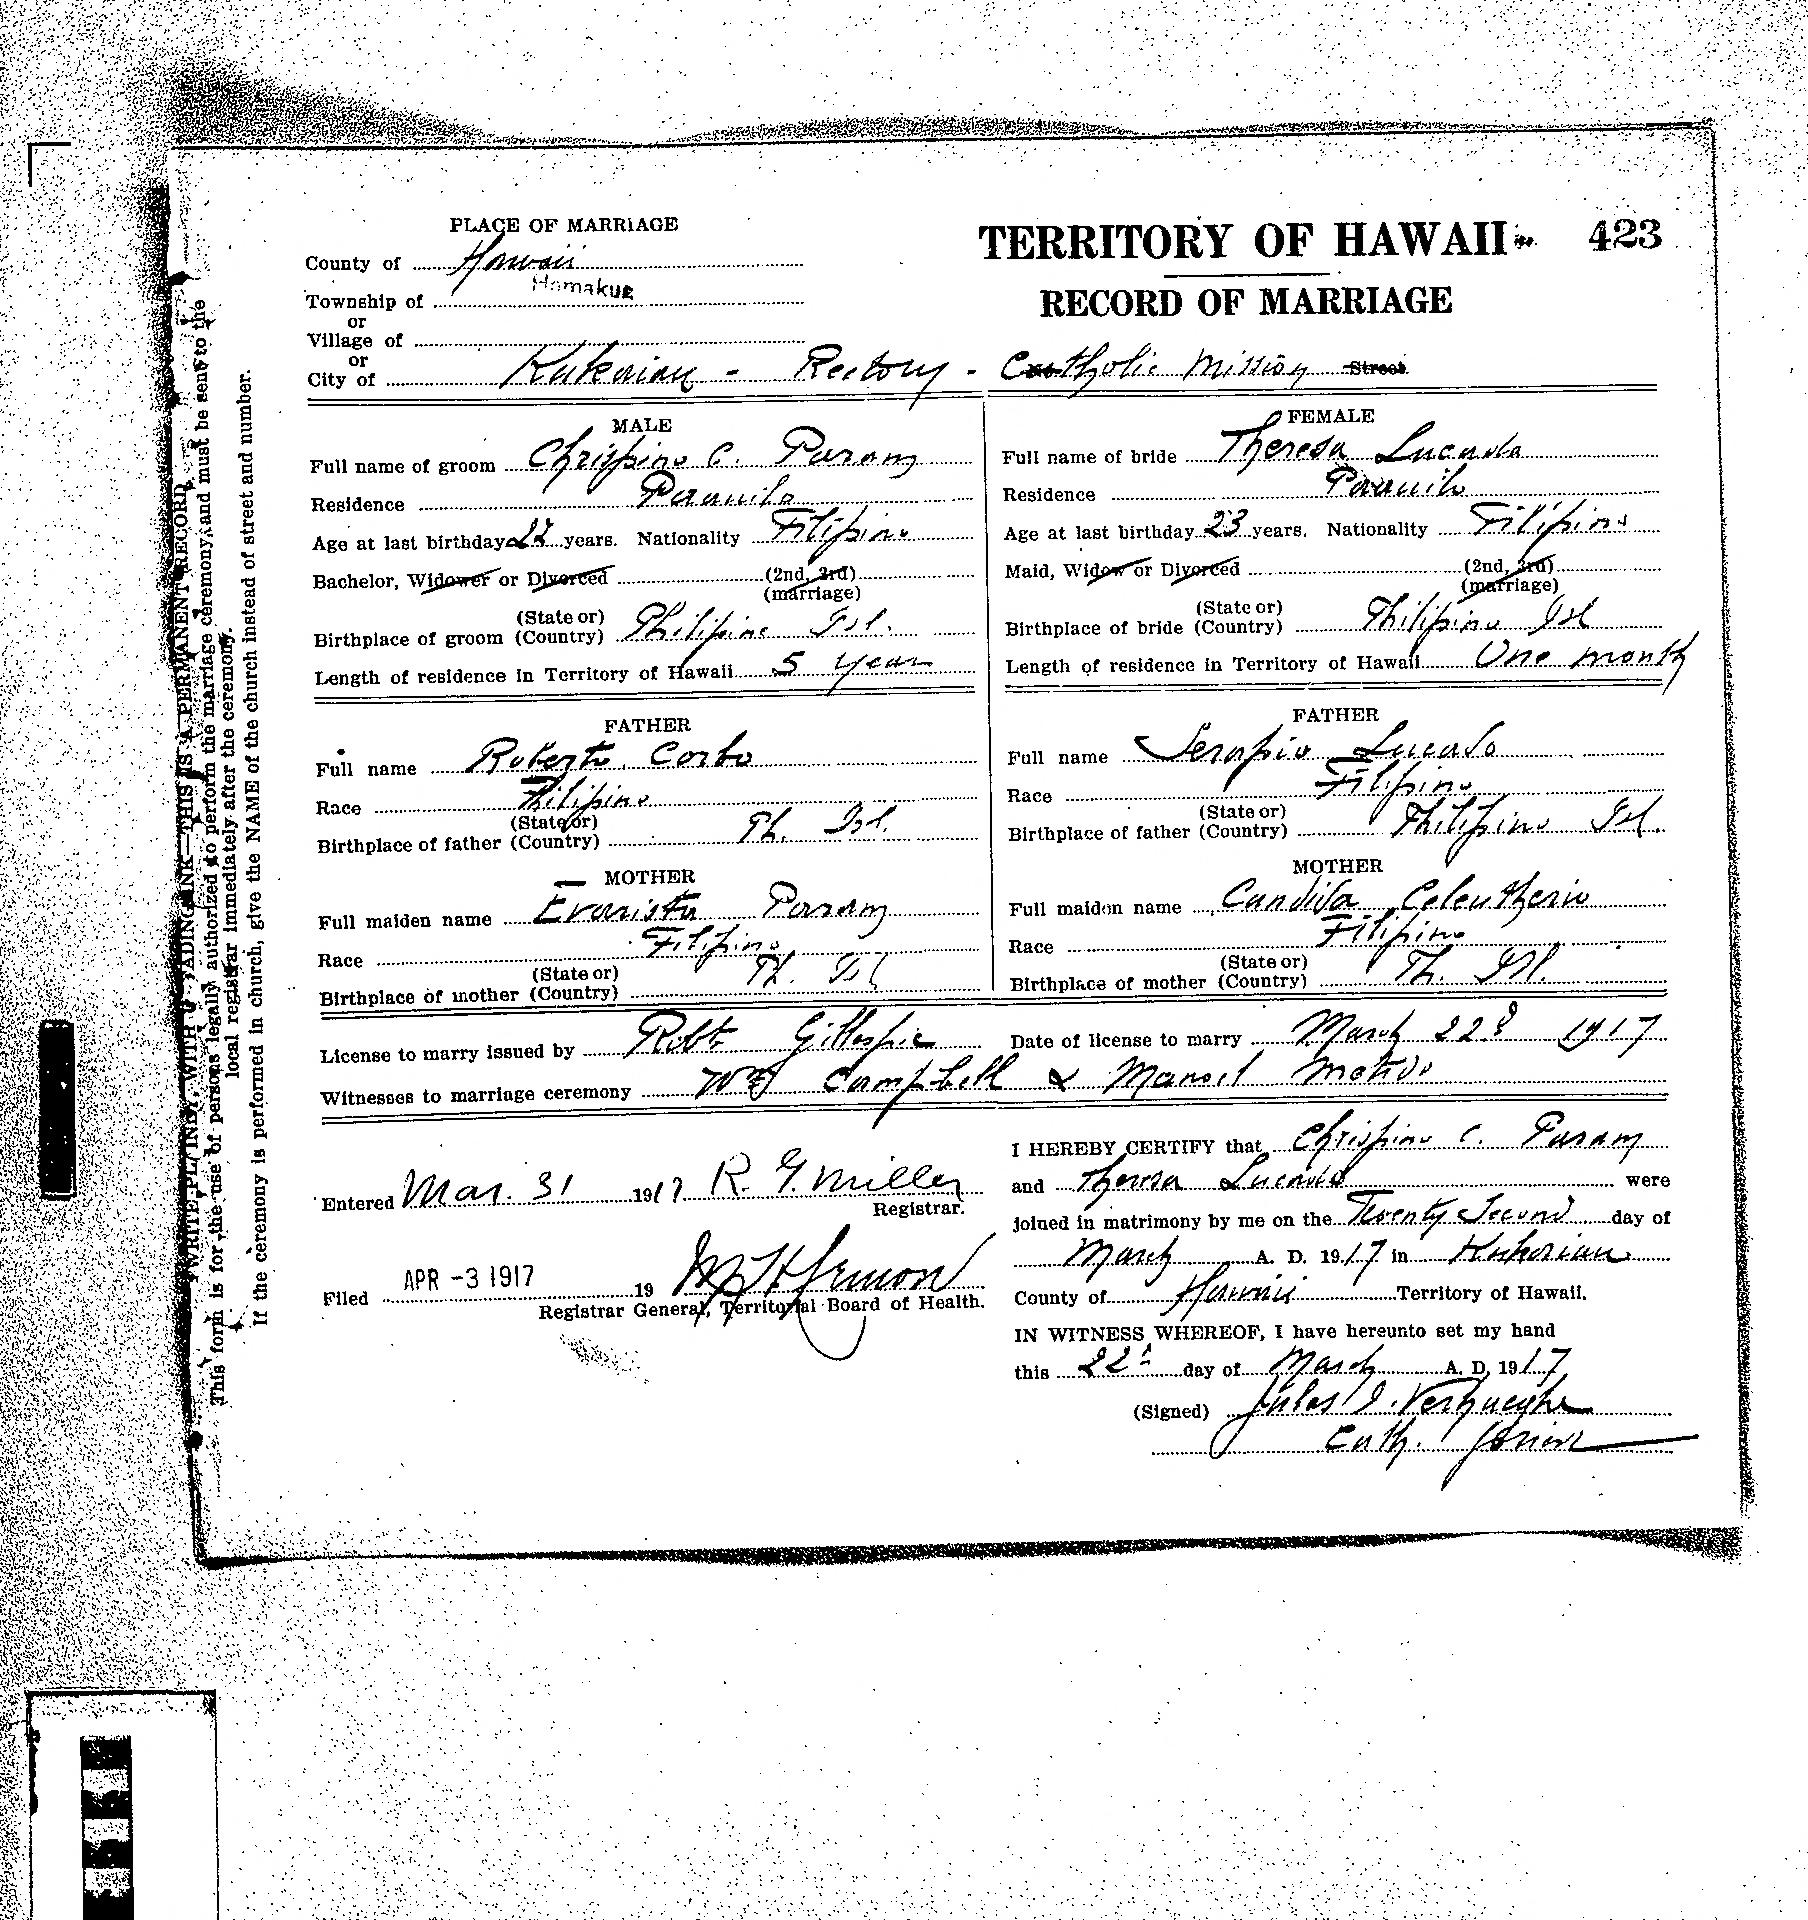 PLACE OF MARRIAGE
County of Hawaii
Hamakua
Township of
or
Village of
or
City of Kukaiau - Rectory - Catholic Mission Street
TERRITORY OF HAWAII 423
RECORD OF MARRIAGE
MALE
Full name of groom Chrispino C. Param
Residence Paauilo
Age at last birthday 27 years. Nationality Filipino
Bachelor, Widower or Divorced (2nd, 3rd)
(marriage)
(State or)
Birthplace of groom (Country) Philipine Isl.
Length of residence in Territory of Hawaii 5 year
FEMALE
Full name of bride Theresa Lucada
Residence Paauilo
Age at last birthday 23 years. Nationality Filipino
Maid, Widow or Divorced (2nd, 3rd)
(marriage)
(State or)
Birthplace of bride (Country) Philipino Isl
Length of residence in Territory of Hawaii One month
FATHER
Full name Roberto Corbo
Race Filipino
(State or)
Birthplace of father (Country) Ph. Isl.
MOTHER
Full maiden name Evarista Param
Race Filipino
(State or)
Birthplace of mother (Country) Ph. Isl
FATHER
Full name Serapio Lucado
Race Filipino
(State or)
Birthplace of father (Country) Philipino Isl.
MOTHER
Full maiden name Candida Celeutherio
Race Filipino
(State or)
Birthplace of mother (Country) Ph. Isl.
License to marry issued by Robt Gillespie Date of license to marry March 22d 1917
Witnesses to marriage ceremony Wm Campbell & Manoel
Entered Mar. 31 1917 R. G. Miller
Registrar.
Filed APR -3 1917 19
Registrar General, Territorial Board of Health.
I HEREBY CERTIFY that Chrispino C. Param
and Theresa Lucado were
joined in matrimony by me on the Twenty Second day of
March A. D. 1917 in Kukaiau
County of Hawaii Territory of Hawaii.
IN WITNESS WHEREOF, I have hereunto set my hand
this 22d day of March A. D. 1917
(Signed) Jules I. Verhaeghe
Cath. Priest
WRITE PLAINLY, WITH UNFADING INK—THIS IS A PERMANENT RECORD
This form is for the use of persons legally authorized to perform the marriage ceremony, and must be sent to the
local registrar immediately after the ceremony.
If the ceremony is performed in church, give the NAME of the church instead of street and number.